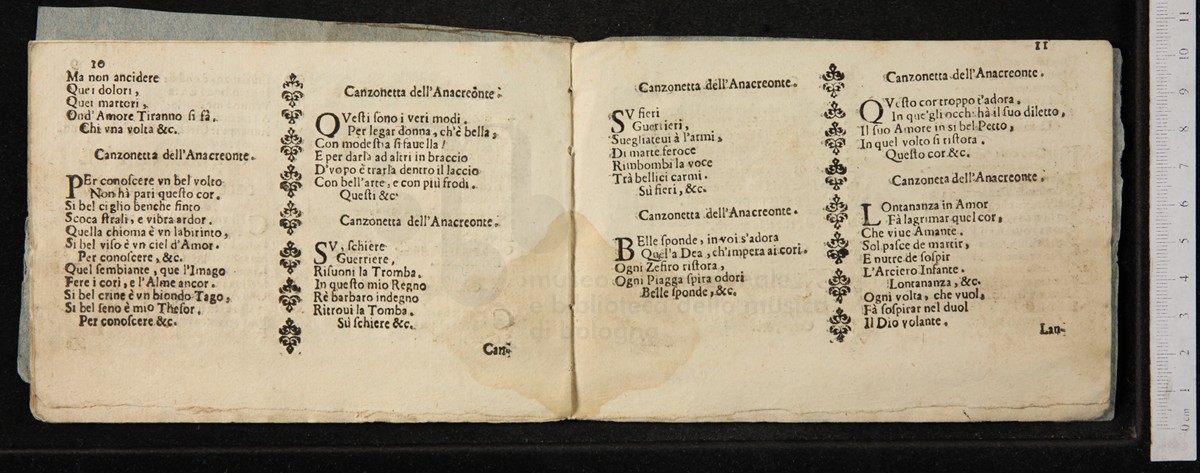 10
Ma non ancidere
Quei dolori,
Quei martori,
Ond'Amore Tiranno si fà.
Chi vna volta &c.
Canzonetta dell'Anacreonte.
PEr conoscere vn bel volto
Non hà pari questo cor.
Si bel ciglio benche finto
Scoca strali, e vibra ardor.
Quella chioma è vn labirinto,
Si bel viso è vn ciel d'Amor.
Per conoscere, &c.
Quel sembiante, que l'Imago
Fere i cori, e l'Alme ancor.
Si bel crine è vn biondo Tago,
Si bel seno è mio Thesor.
Per conoscere &c.
Canzonetta dell'Anacreonte.
QVesti sono i veri modi.
Per legar donna, ch'è bella,
Con modestia si fauella!
E per darla ad altri in braccio
D'vopo è trarla dentro il laccio
Con bell'arte, e con più frodi.
Questi &c.
Canzonetta dell'Anacreonte.
SV, schiere
Guerriere,
Risuoni la Tromba.
In questo mio Regno
Rè barbaro indegno
Ritroui la Tomba.
Sù schiere &c.
Can-
11
Canzonetta dell'Anacreonte.
SV fieri
Guerrieri,
Suegliateui à l'armi,
Di marte feroce
Rimbombi la voce
Trà bellici carmi.
Sù fieri, &c.
Canzonetta dell'Anacreonte.
BElle sponde, in voi s'adora
Quel'a Dea, ch'impera ai cori.
Ogni Zefiro ristora,
Ogni Piagga spira odori
Belle sponde, &c.
Canzonetta dell'Anacreonte.
QVesto cor troppo t'adora,
In que'gli occhi hà il suo diletto,
Il suo Amore in si bel Petto,
In quel volto si ristora.
Questo cor &c.
Canzonetta dell'Anacreonte.
LOntananza in Amor
Fà lagrimar quel cor,
Che viue Amante.
Sol pasce de martir,
E nutre de sospir
L'Arciero Infante.
Lontananza, &c.
Ogni volta, che vuol,
Fà sospirar nel duol
Il Dio volante.
Lan-
museo
biblioteca della musica
di bologna
0 cm 1 2 3 4 5 6 7 8 9 10 11